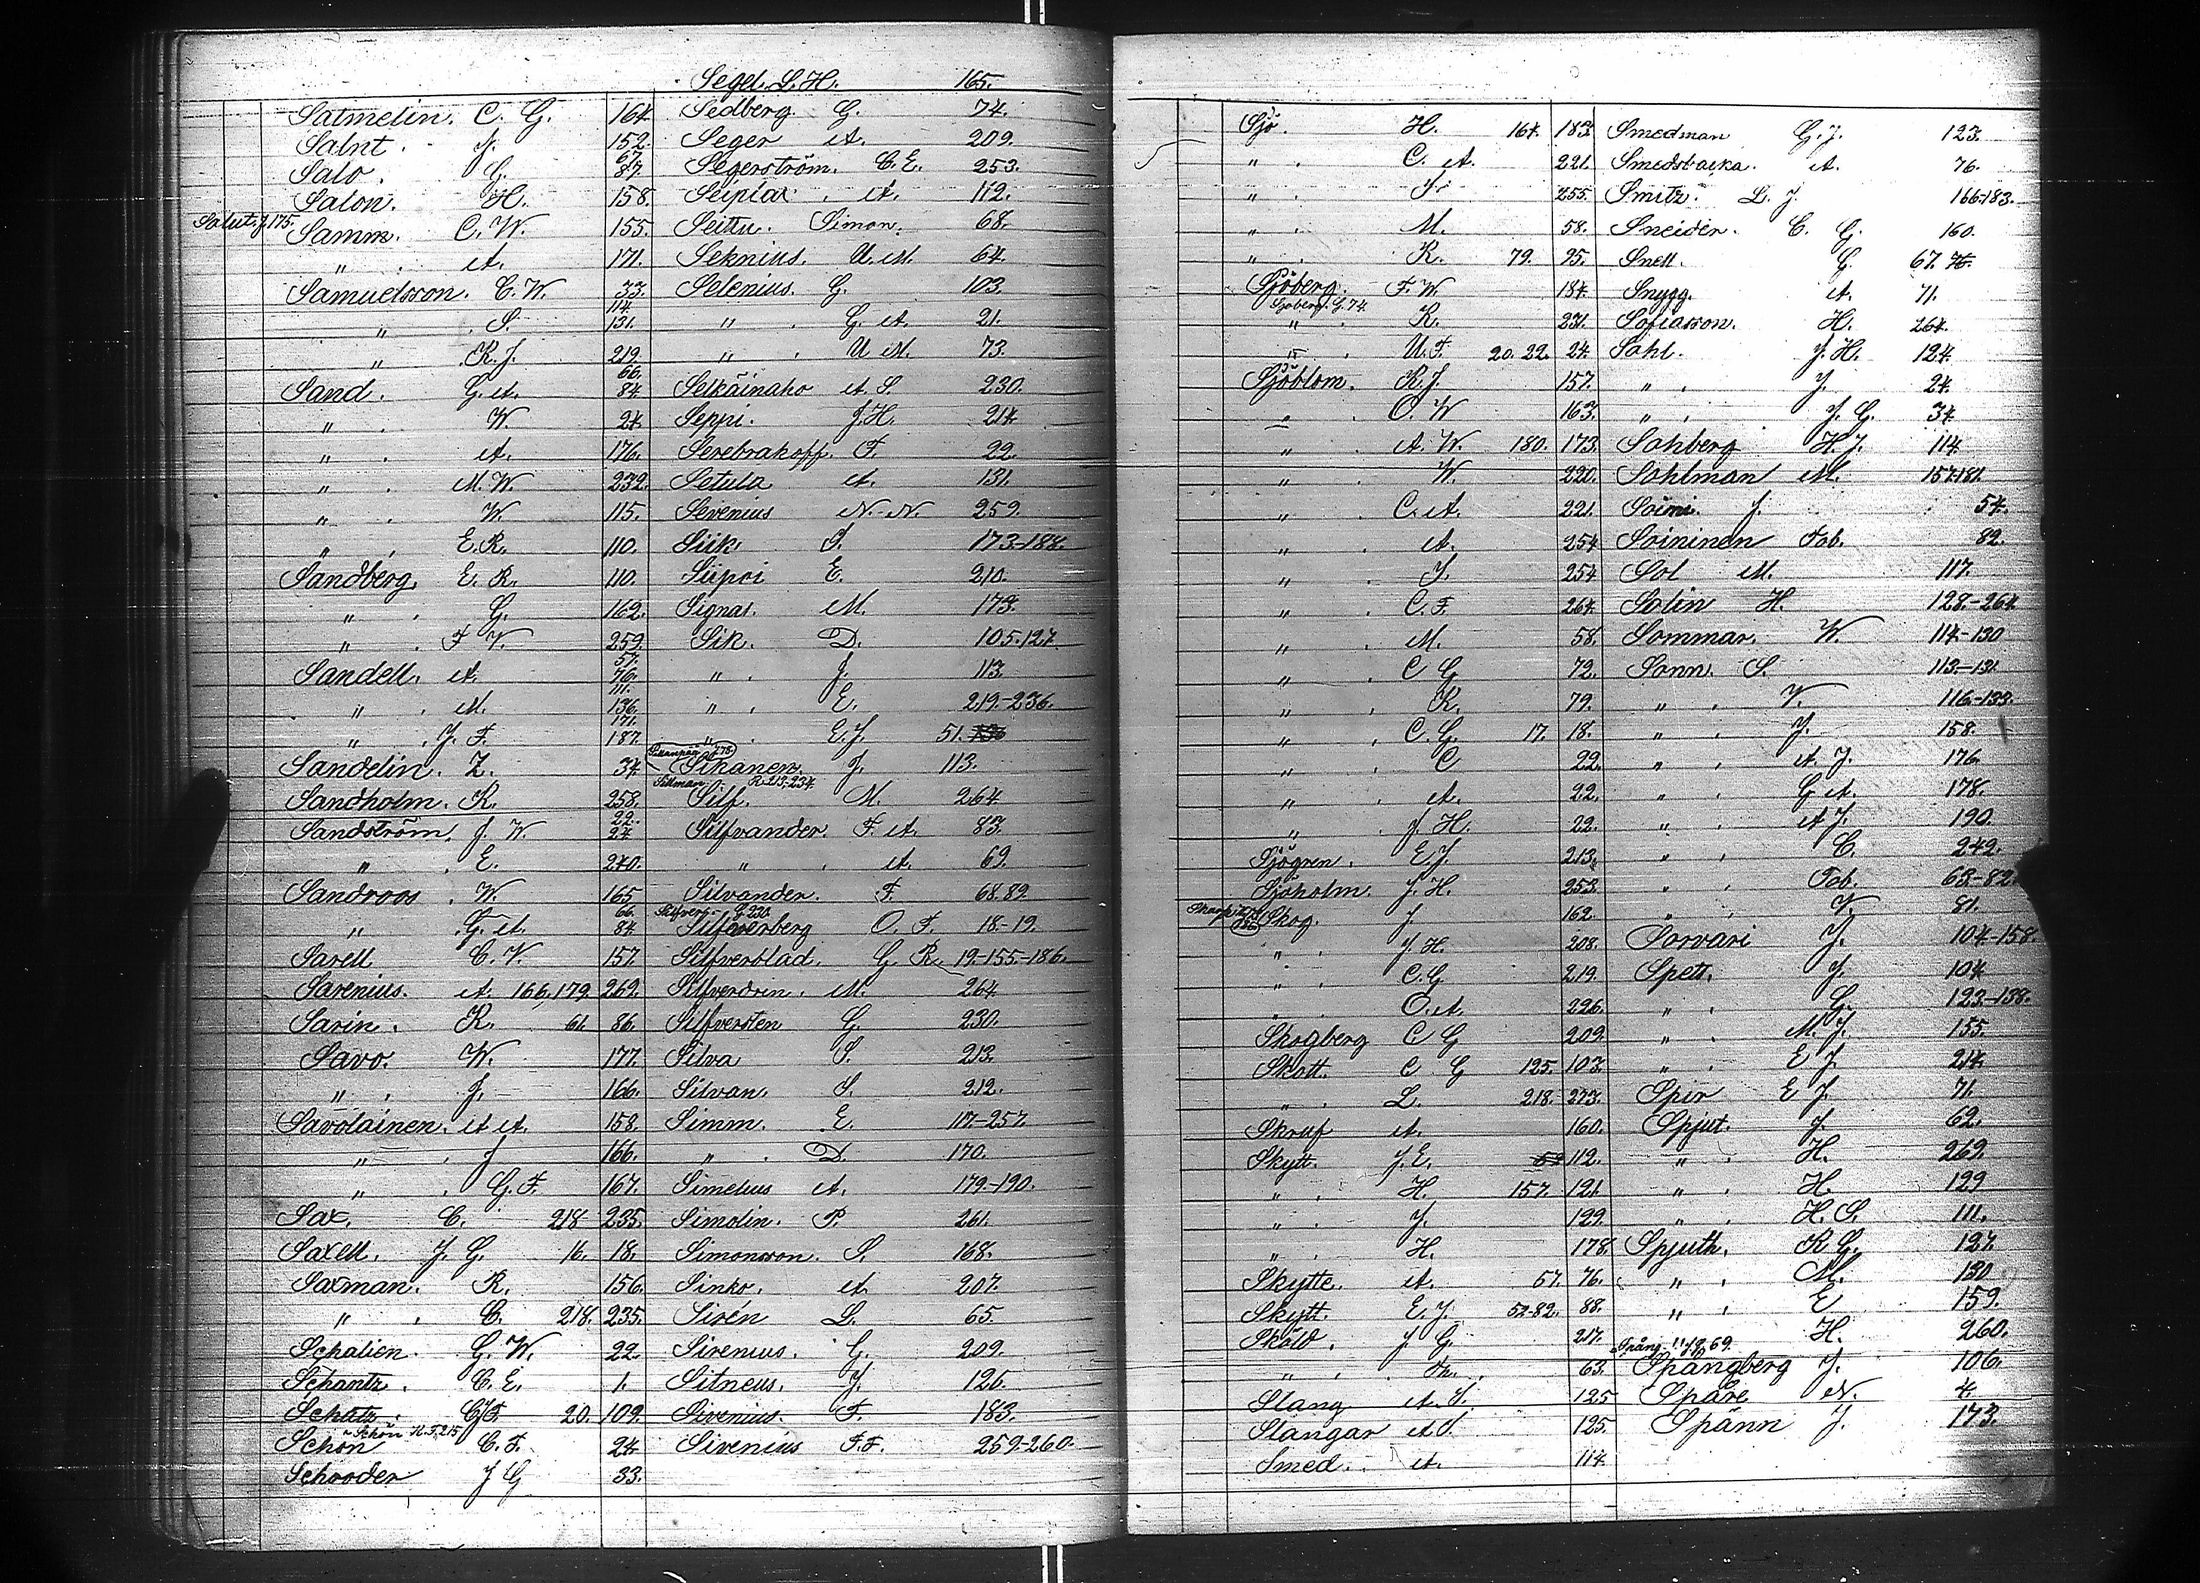 Segel. L. H. 165.
Salmelin. C. G. 164.
Salnt. J. 152.
Salo. G. 67. 87.
Salon. H. 158.
Salut. J. 175.
Samm. C. W. 155.
" . A. 171.
Samuelsson. C. W. 33.
" . S. 114. 131.
" . K. J. 219.
Sand. G. A. 66. 84.
" . W. 24.
" . A. 176.
" . M. W. 232.
" . W. 115.
" . E. R. 110.
Sandberg. E. R. 110.
" . G. 162.
" . F. V. 259.
Sandell. A. 57. 76.
" . M. 111. 136.
" . J. F. 171. 187.
Sandelin. Z. 34.
Sandholm. K. 258.
Sandström. J. W. 22. 24.
" . E. 240.
Sandroos. W. 165
" . G. A. 66. 84.
Sarell C. V. 157.
Sarenius. A. 166, 179. 269.
Sarin. K. 61. 86.
Savo. W. 177.
" . J. 166.
Savolainen. A. A. 158.
" . J 166.
" . G. F. 167.
Sax. C. 218 235.
Saxell. J. G. 16. 18.
Saxman. R. 156.
" . C. 218. 235.
Schalien. G. W. 22.
Schantz. C. E. 1.
Schatz. C. F. 20. 109.
Schön N. F. 215
Schön C. F. 24.
Schroder J G 33.
Sedberg. G. 74.
Seger A. 209.
Segerström. C. E. 253.
Seiplax. A. 112.
Seittu. Simon. 68.
Seknius. U. M. 64.
Selenius. G. 103.
" . G. A. 21.
" . U M. 73.
Selkäinaho A. S. 230.
Seppi. J. H. 214
Serebrakoff. F. 22.
Setula A. 131.
Sevenius N. N. 259.
Siik. S. 173-188.
Siipoi E. 210.
Signas. M. 173.
Sik. D. 105.-127.
" . J. 113.
" . E. 219.-236.
" . E. J. 51.
Sikanen J. 113.
R. 213, 234.
Silf. M. 264
Silfvander. F. A. 83.
" . A. 69.
Silvander. F. 68. 89.
Silfverberg O. F. 18.-19.
Silfverblad. G. R. 19.-155-186.
Silfverdrin. M. 264.
Silfversten G. 230.
Silva S. 213.
Silvan. S. 212.
Simm. E. 117-257.
" . D. 170.
Simelius A. 179-190.
Simolin. P. 261.
Simonsson. S. 168.
Sinko. A. 207.
Sirén L. 65.
Sirenius. G. 209.
Sitneus. J. 126.
Sivenius. F. 183.
Sivenius F. F. 259-260.
Sjö. H. 164. 183.
" . C. A. 221.
" . J. 255.
" . M. 58.
" . R. 79. 95.
Sjöberg. F. W. 184.
Sjoberg. G. 74.
" . R. 231.
" . U. F. 20. 22. 24.
Sjöblom. K. J. 157.
" . O. W 163.
" . A. W. 180. 173.
" . W. 220.
" . C. A. 221.
" . A. 254
" . J. 254
" . C. F. 264.
" . M. 58.
" . C G 72.
" . K. 79.
" . C. G. 17. 18.
" . C 22.
" . A. 22.
" . J. H. 22.
Sjögren. E. J. 213.
Sjöholm. J. H. 253.
Skog. J. 162.
" . J H. 208.
" . C. G. 219.
" . O. A. 226.
Skogberg C G 209.
Skott. C G 125. 103.
" . L. 218. 273.
Skruf A. 160.
Skytt. J. E. 112.
" . H. 157. 121.
" . J. 129.
" . H. 178.
Skytte. A. 57. 76.
Skytt. E. J. 52-82. 88.
Sköld. J G. 217.
" . 63.
Slang A. S. 125
Slangar A S. 125.
Smed. A. 114.
Smedman G. J. 123.
Smedsbacka. A. 76.
Smitz. L. J. 166.-183.
Sneider. C. G. 160.
Snell. G. 67.
Snygg. A. 71.
Sofiasson. H. 264.
Sohl. J. H. 124.
" . J. 24.
" . J. G. 34.
Sohberg H. J. 114.
Sohlman M. 157.-181.
Soimi. J. 54.
Soininen Tob. 82.
Sol M. 117.
Solin H. 128.-264
Sommar. W. 114.-130
Sonn. S. 113.-131.
" . V. 116.-133.
" . J. 158.
" . A. J. 176.
" . G A. 178.
" . A J. 190.
" . C. 242.
" . Tob. 63-82.
" . V. 81.
Sorvari J. 104-158.
Spett. J. 104
" . G. 123-138.
" . M. J. 155.
" . E J. 214.
Spir E J. 71.
Spjut. J. 62.
" . H. 269.
" . H. 129
" . H. S. 111.
Spjuth. K G. 127.
" . M. 130
" . E 159.
" H. 260.
Spångberg J. 106.
Spåre N. 4.
Spänn J. 173.